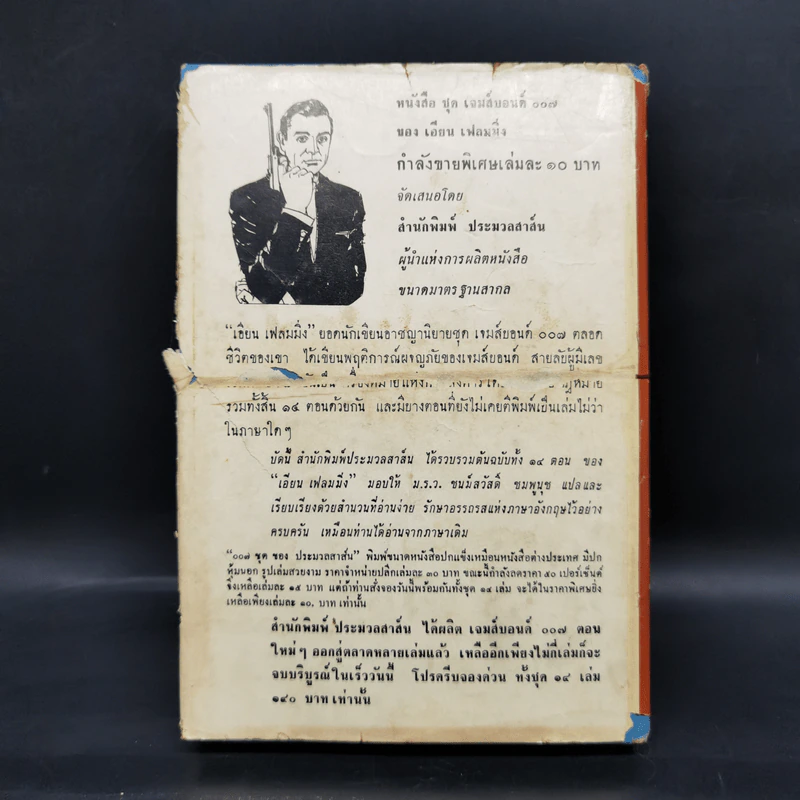 หนังสือ ชุด เจมส์บอนด์ ๐๐๗
ของ เอียน เฟลมมิ่ง
กำลังขายพิเศษเล่มละ ๑๐ บาท
จัดเสนอโดย
สำนักพิมพ์ ประมวลสาส์น
ผู้นำแห่งการผลิตหนังสือ
ขนาดมาตรฐานสากล
“เอียน เฟลมมิ่ง” ยอดนักเขียนอาชญานิยายชุด เจมส์บอนด์ ๐๐๗ ตลอด
ชีวิตของเขา ได้เขียนพฤติการณ์ผจญภัยของเจมส์บอนด์ สายลับผู้มีเลข
รวมทั้งสิ้น ๑๔ ตอนด้วยกัน และมีบางตอนที่ยังไม่เคยตีพิมพ์เป็นเล่มไม่ว่า
ในภาษาใดๆ
บัดนี้ สำนักพิมพ์ประมวลสาส์น ได้รวบรวมต้นฉบับทั้ง ๑๔ ตอน ของ
“เอียน เฟลมมิ่ง” มอบให้ ม.ร.ว. ชนม์สวัสดิ์ ชมพูนุช แปลและ
เรียบเรียงด้วยสำนวนที่อ่านง่าย รักษาอรรถรสแห่งภาษาอังกฤษไว้อย่าง
ครบครัน เหมือนท่านได้อ่านจากภาษาเดิม
“๐๐๗ ชุด ของ ประมวลสาส์น” พิมพ์ขนาดหนังสือปกแข็งเหมือนหนังสือต่างประเทศ มีปก
หุ้มนอก รูปเล่มสวยงาม ราคาจำหน่ายปลีกเล่มละ ๓๐ บาท ขณะนี้กำลังลดราคา ๕๐ เปอร์เซ็นต์
จึงเหลือเล่มละ ๑๕ บาท แต่ถ้าท่านสั่งจองวันนี้พร้อมกันทั้งชุด ๑๔ เล่ม จะได้ในราคาพิเศษยิ่ง
เหลือเพียงเล่มละ ๑๐. บาท เท่านั้น
สำนักพิมพ์ ประมวลสาส์น ได้ผลิต เจมส์บอนด์ ๐๐๗ ตอน
ใหม่ๆ ออกสู่ตลาดหลายเล่มแล้ว เหลืออีกเพียงไม่กี่เล่มก็จะ
จบบริบูรณ์ในเร็ววันนี้ โปรดรีบจองด่วน ทั้งชุด ๑๔ เล่ม
๑๔๐ บาท เท่านั้น